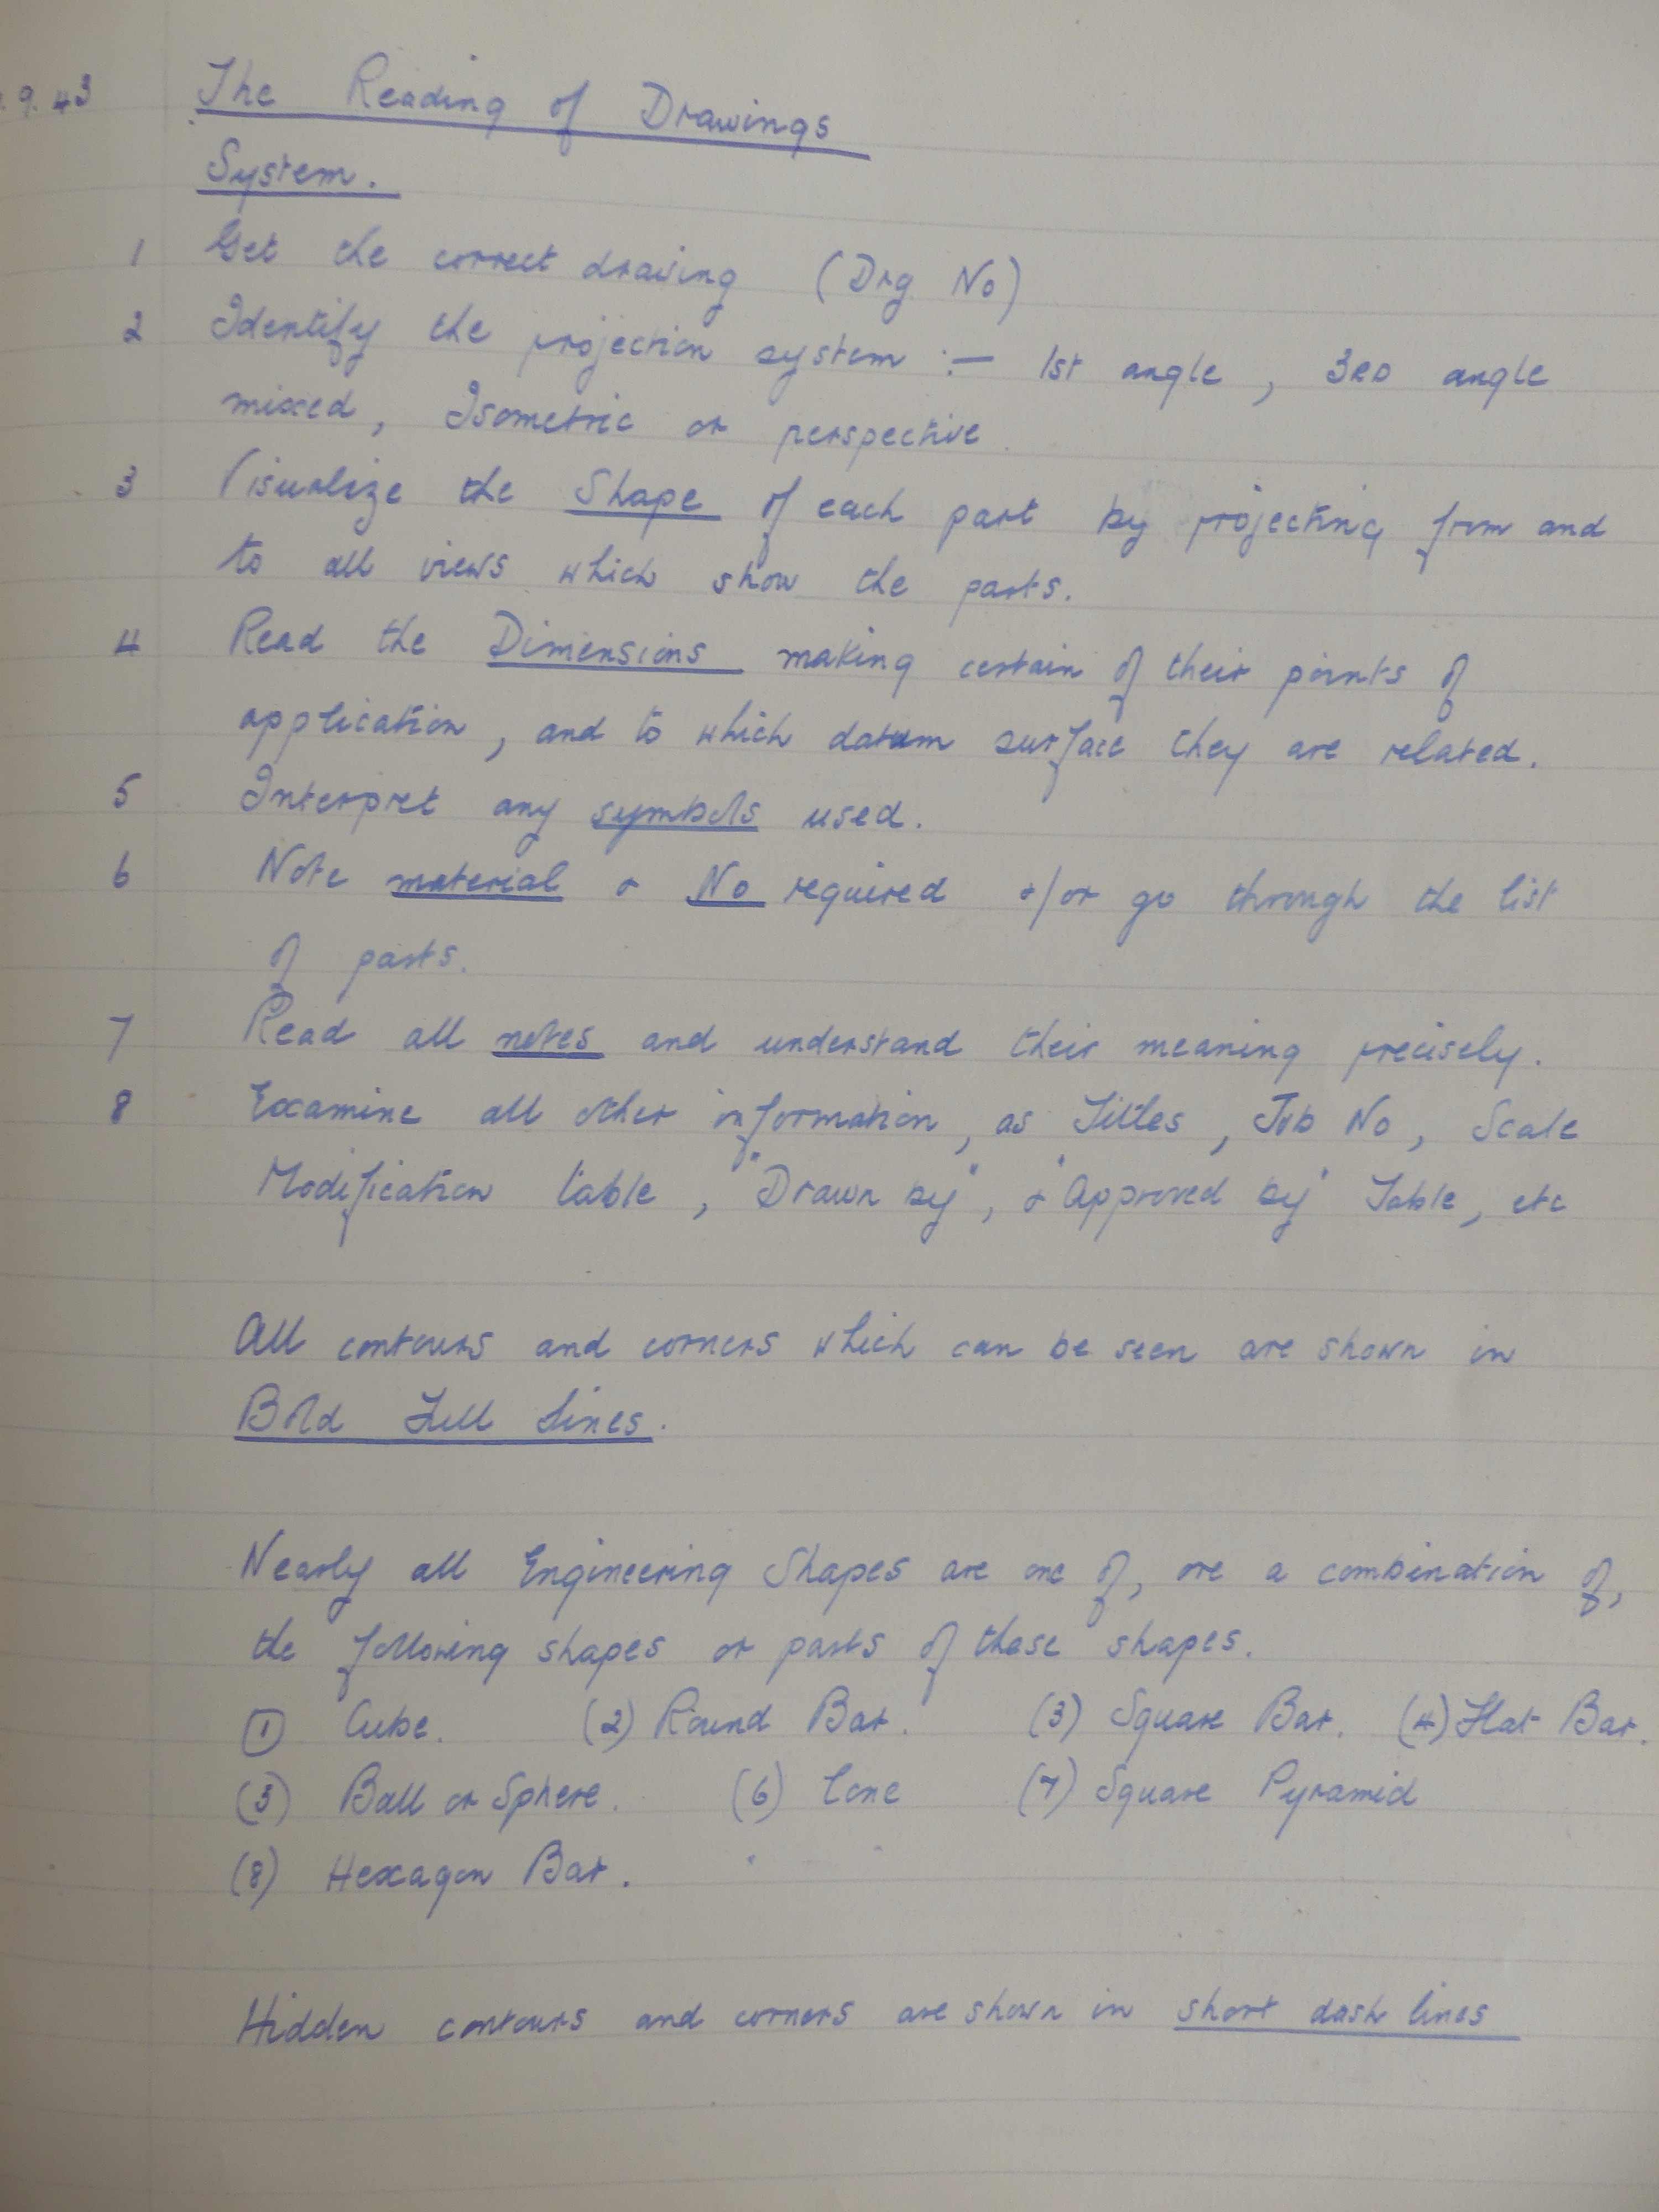 .9.43 The Reading of Drawings
System.
1 Get the correct drawing (Drg No)
2 Identify the projection system :— 1st angle, 3RD angle
mixed, Isometric or perspective.
3 Visualize the Shape of each part by projecting from and
to all views which show the parts.
4 Read the Dimensions making certain of their points of
application, and to which datum surface they are related.
5 Interpret any symbols used.
6 Note material & No required &/or go through the list
of parts.
7 Read all notes and understand their meaning precisely.
8 Examine all other information, as Titles, Job No, Scale
Modification table, "Drawn by", & "Approved by" Table, etc
All contours and corners which can be seen are shown in
Bold Full Lines.
Nearly all Engineering Shapes are one of, ore a combination of,
the following shapes or parts of these shapes.
(1) Cube. (2) Round Bar. (3) Square Bar. (4) Flat Bar.
(5) Ball or Sphere. (6) Cone (7) Square Pyramid
(8) Hexagon Bar.
Hidden contours and corners are shown in short dash lines